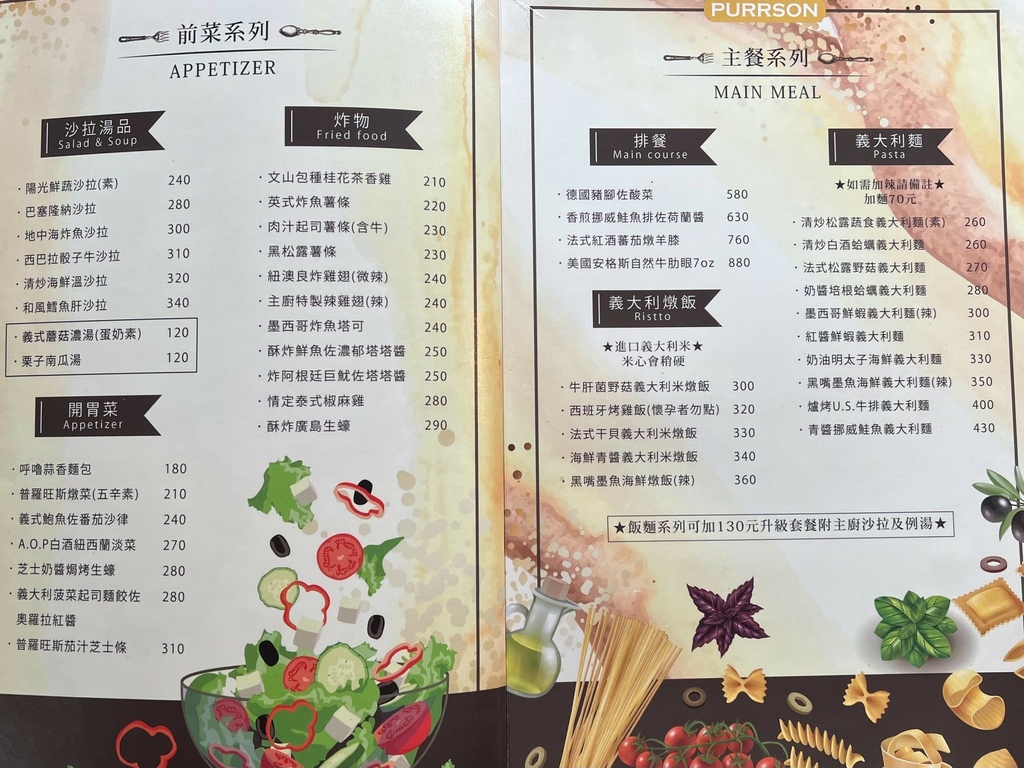 前菜系列
APPETIZER
沙拉湯品
Salad & Soup
·陽光鮮蔬沙拉(素) 240
·巴塞隆納沙拉 280
·地中海炸魚沙拉 300
·西巴拉骰子牛沙拉 310
·清炒海鮮溫沙拉 320
·和風鱈魚肝沙拉 340
·義式蘑菇濃湯(蛋奶素) 120
·栗子南瓜湯 120
開胃菜
Appetizer
·呼嚕蒜香麵包 180
·普羅旺斯燉菜(五辛素) 210
·義式鮑魚佐番茄沙律 240
·A.O.P白酒紐西蘭淡菜 270
·芝士奶醬焗烤生蠔 280
·義大利菠菜起司麵餃佐 280
奧羅拉紅醬
·普羅旺斯茄汁芝士條 310
炸物
Fried food
·文山包種桂花茶香雞 210
·英式炸魚薯條 220
·肉汁起司薯條(含牛) 230
·黑松露薯條 230
·紐澳良炸雞翅(微辣) 240
·主廚特製辣雞翅(辣) 240
·墨西哥炸魚塔可 240
·酥炸鮮魚佐濃郁塔塔醬 250
·炸阿根廷巨魷佐塔塔醬 250
·情定泰式椒麻雞 280
·酥炸廣島生蠔 290
PURRSON
主餐系列
MAIN MEAL
排餐
Main course
·德國豬腳佐酸菜 580
·香煎挪威鮭魚排佐荷蘭醬 630
·法式紅酒蕃茄燉羊膝 760
·美國安格斯自然牛肋眼7oz 880
義大利燉飯
Ristto
★進口義大利米★
米心會稍硬
·牛肝菌野菇義大利米燉飯 300
·西班牙烤雞飯(懷孕者勿點) 320
·法式干貝義大利米燉飯 330
·海鮮青醬義大利米燉飯 340
·黑嘴墨魚海鮮燉飯(辣) 360
義大利麵
Pasta
★如需加辣請備註★
加麵70元
·清炒松露蔬食義大利麵(素) 260
·清炒白酒蛤蠣義大利麵 260
·法式松露野菇義大利麵 270
·奶醬培根蛤蠣義大利麵 280
·墨西哥鮮蝦義大利麵(辣) 300
·紅醬鮮蝦義大利麵 310
·奶油明太子海鮮義大利麵 330
·黑嘴墨魚海鮮義大利麵(辣) 350
·爐烤U.S.牛排義大利麵 400
·青醬挪威鮭魚義大利麵 430
★飯麵系列可加130元升級套餐附主廚沙拉及例湯★